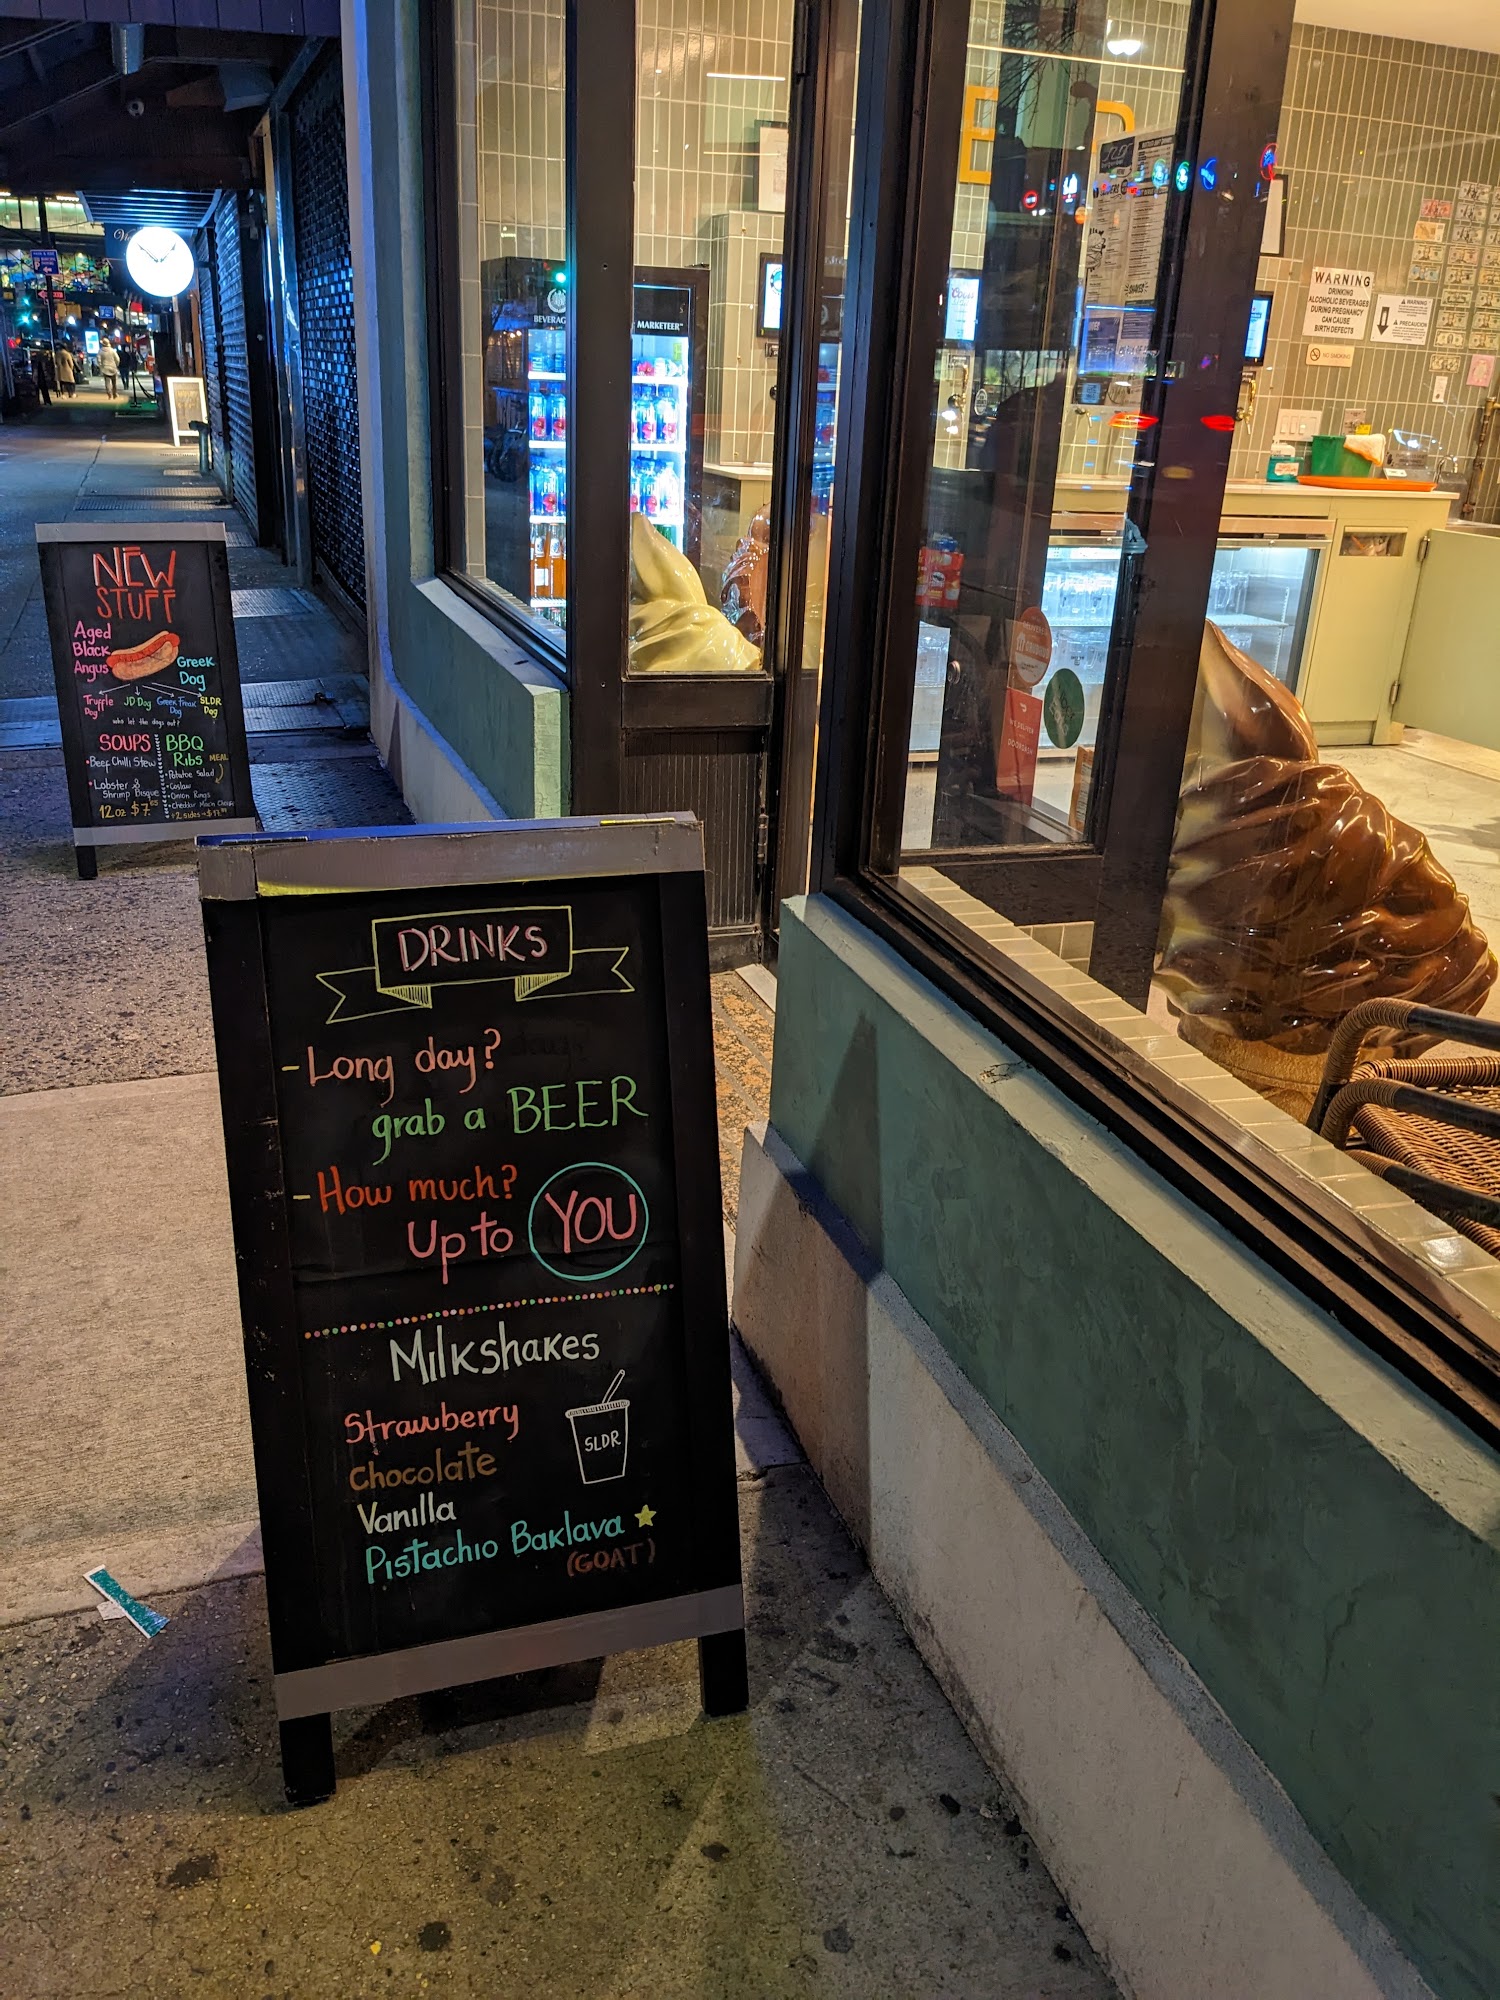 NEW
STUFF
Aged
Black
Angus
Greek
Dog
Truffle
Dog
JD Dog
Greek Freak
Dog
SLDR
Dog
who let the dogs out?
SOUPS
• Beef Chilli Stew
• Lobster &
Shrimp Bisque
12 oz $7.95
BBQ
Ribs MEAL
• Potatoe Salad
• Coslaw
• Onion Rings
• Cheddar Mac n Cheese
DRINKS
- Long day?
grab a BEER
- How much?
Up to YOU
Milkshakes
Strawberry
Chocolate
Vanilla
Pistachio Baklava
(GOAT)
SLDR
BEVERAG
MARKETEER
WARNING
DRINKING
ALCOHOLIC BEVERAGES
DURING PREGNANCY
CAN CAUSE
BIRTH DEFECTS
WARNING
PRECAUCION
NO SMOKING
WE DELIVER
DOORDASH